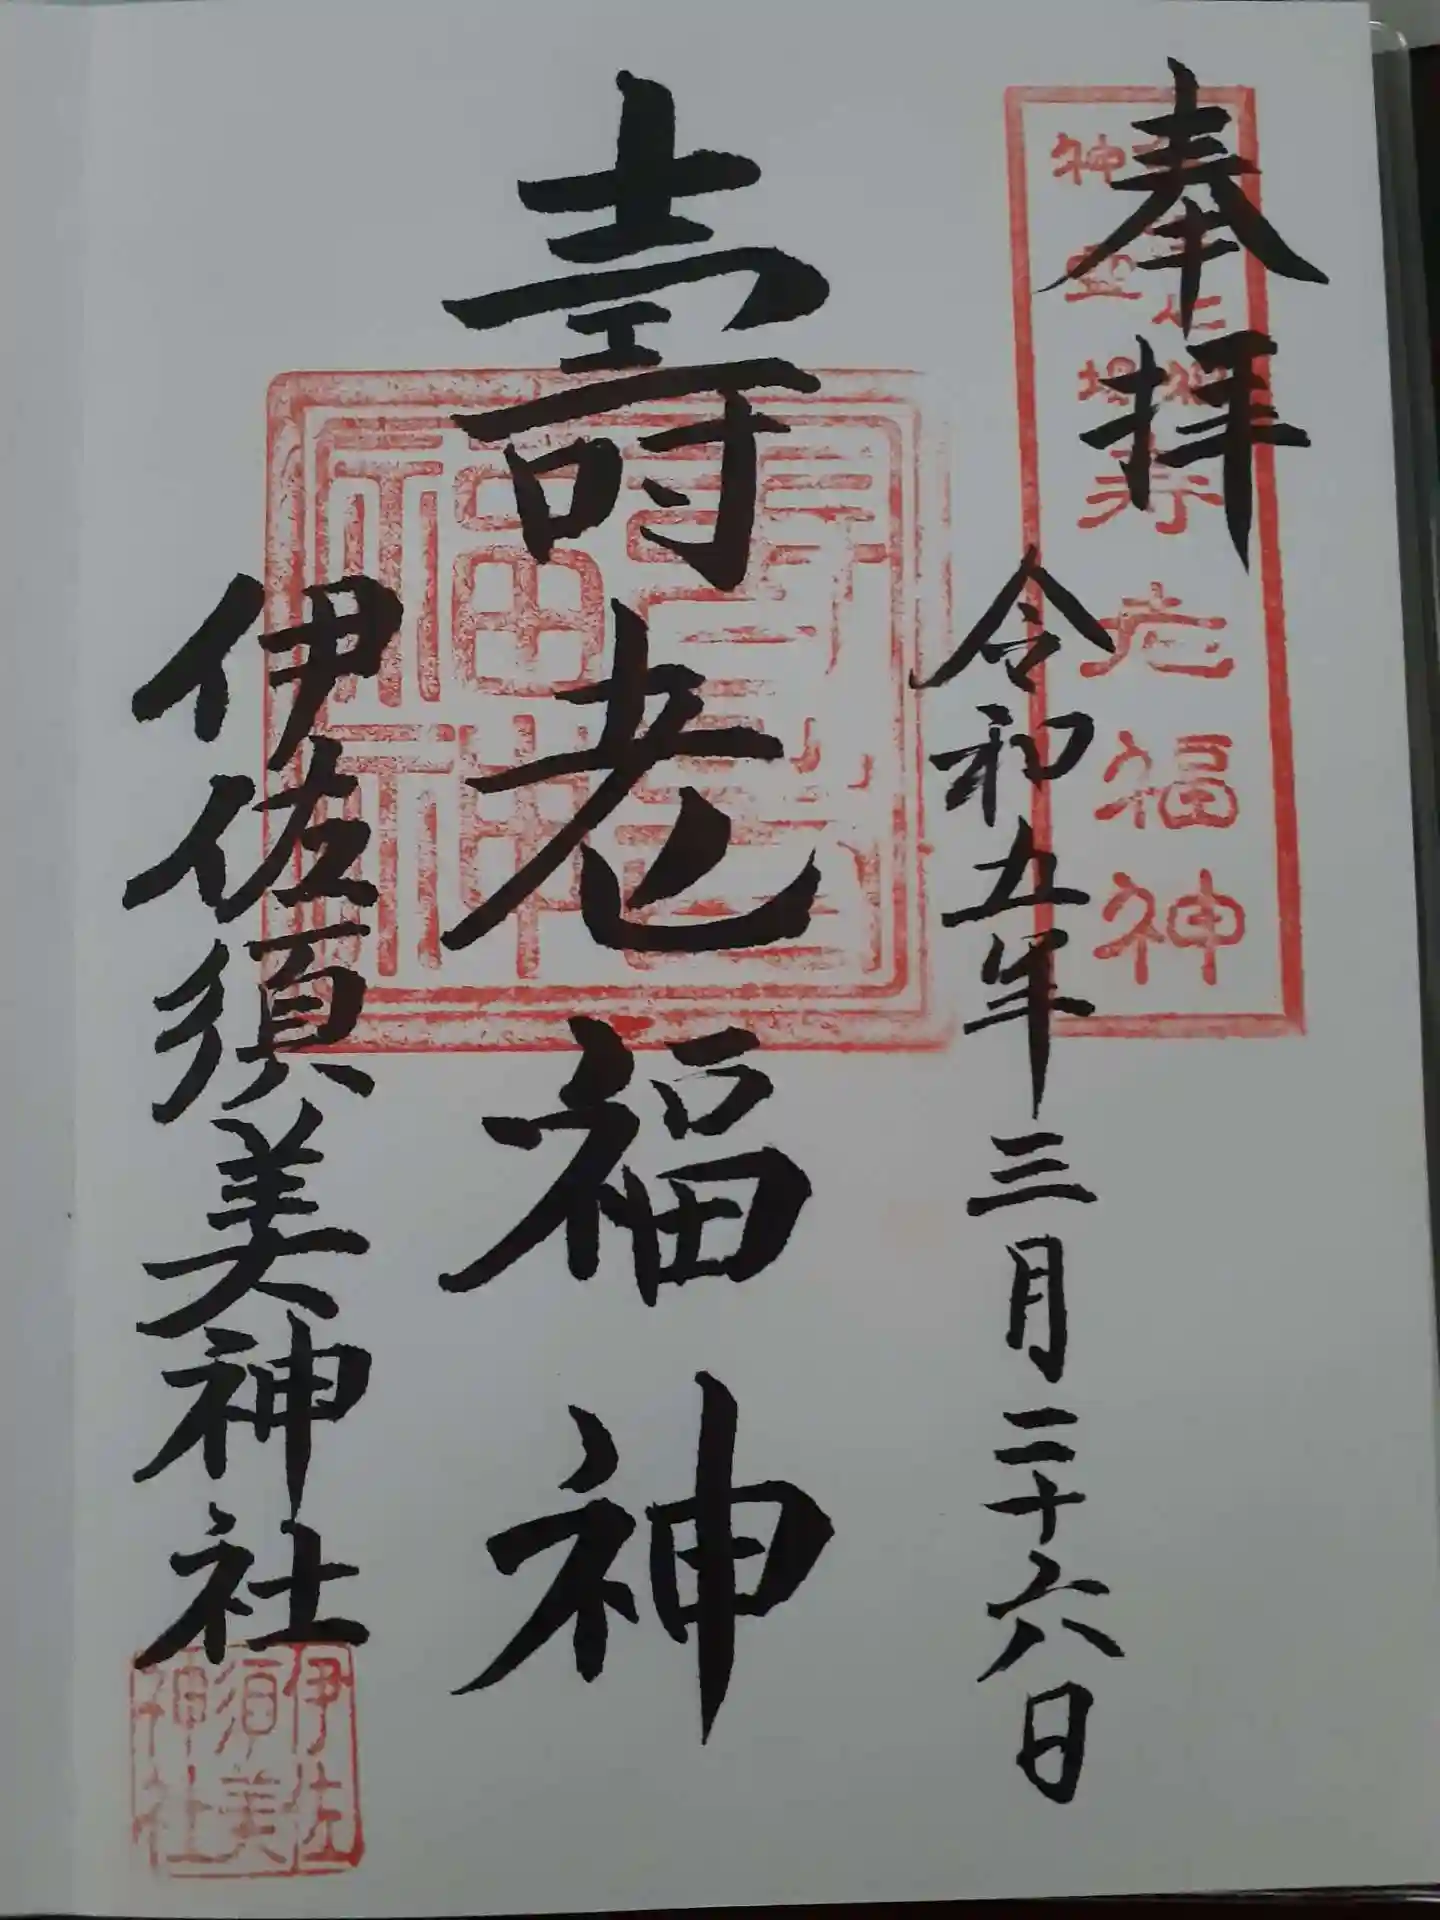 奉拝
神霊場
寿老福神
令和五年三月二十六日
壽老福神
伊佐須美神社
伊佐
須美
神社